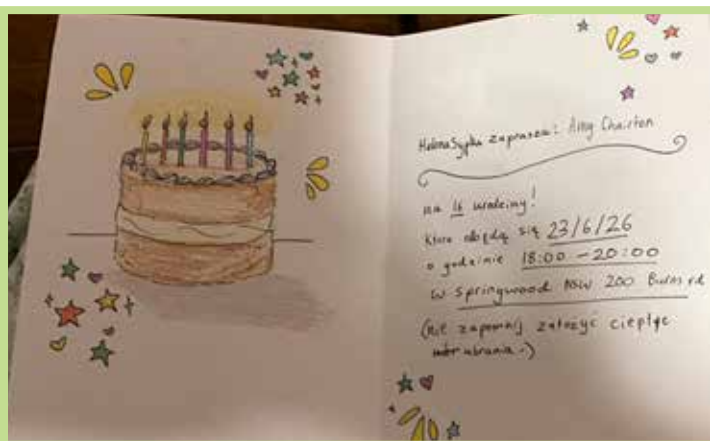 Helena Sypka zaprasza: Amy Chairton
na 16 urodziny!
które obędą się 23/6/26
o godzinie 18:00 - 20:00
w Springwood NSW 200 Burns rd
(nie zapomnij założyć ciepłe
ubrania.)